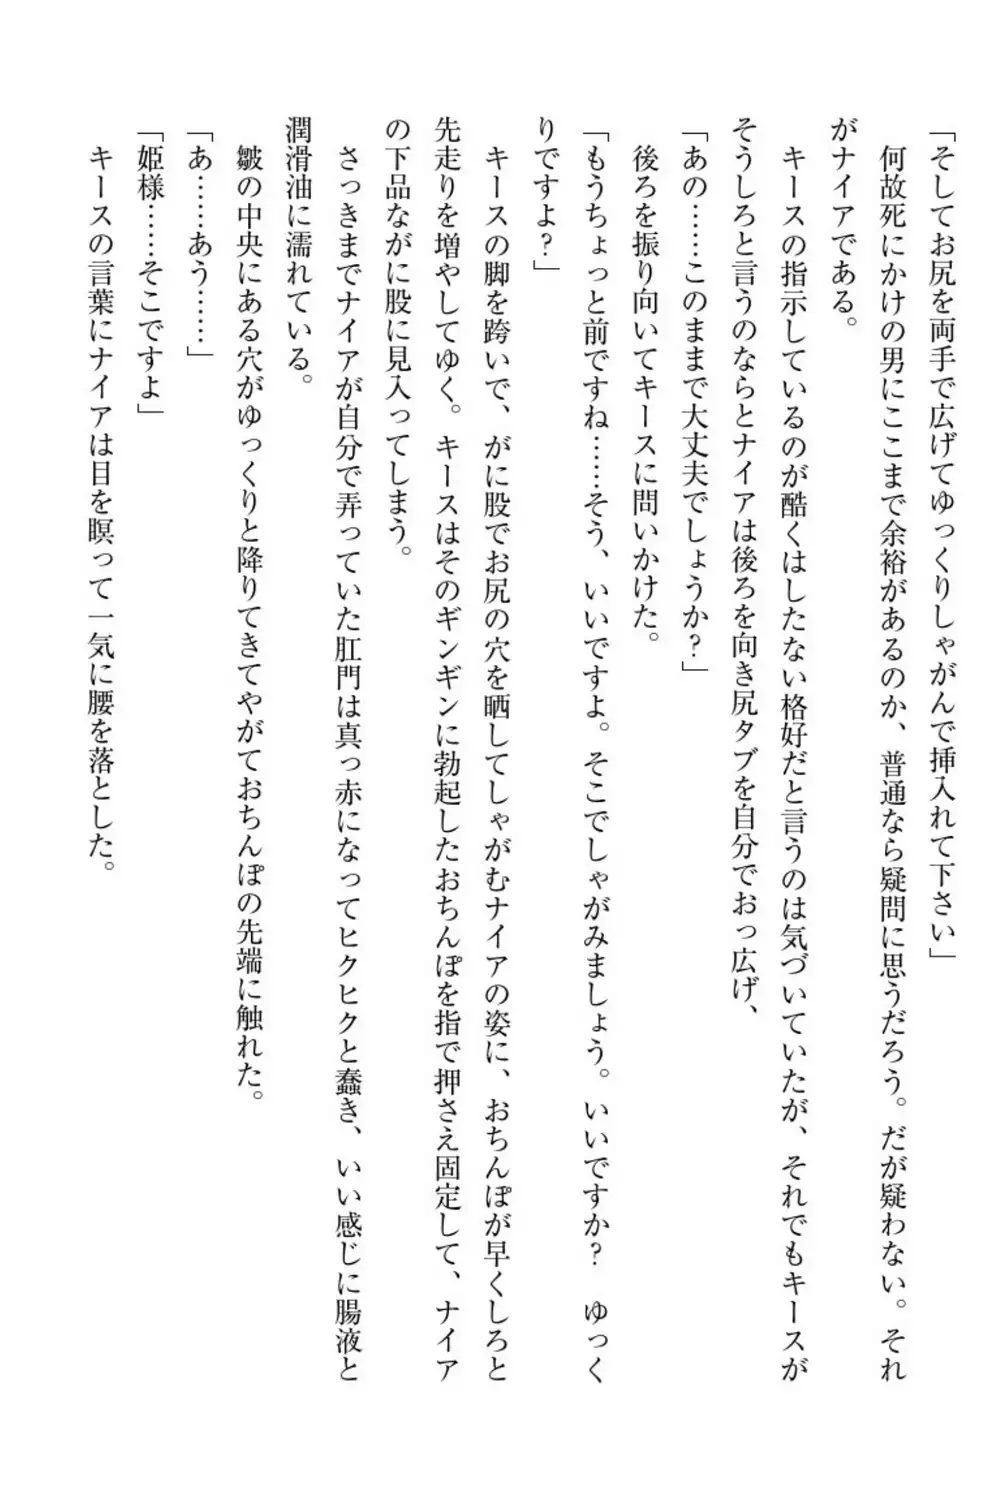 「そしてお尻を両手で広げてゆっくりしゃがんで挿入れて下さい」
何故死にかけの男にここまで余裕があるのか、普通なら疑問に思うだろう。だが疑わない。それ
がナイアである。
キースの指示しているのが酷くはしたない格好だと言うのは気づいていたが、それでもキースが
そうしろと言うのならとナイアは後ろを向き尻タブを自分でおっ広げ、
「あの……このままで大丈夫でしょうか？」
後ろを振り向いてキースに問いかけた。
「もうちょっと前ですね……そう、いいですよ。そこでしゃがみましょう。いいですか？　ゆっく
りですよ？」
キースの脚を跨いで、がに股でお尻の穴を晒してしゃがむナイアの姿に、おちんぽが早くしろと
先走りを増やしてゆく。キースはそのギンギンに勃起したおちんぽを指で押さえ固定して、ナイア
の下品ながに股に見入ってしまう。
さっきまでナイアが自分で弄っていた肛門は真っ赤になってヒクヒクと蠢き、いい感じに腸液と
潤滑油に濡れている。
皺の中央にある穴がゆっくりと降りてきてやがておちんぽの先端に触れた。
「あ……あう……」
「姫様……そこですよ」
キースの言葉にナイアは目を瞑って一気に腰を落とした。